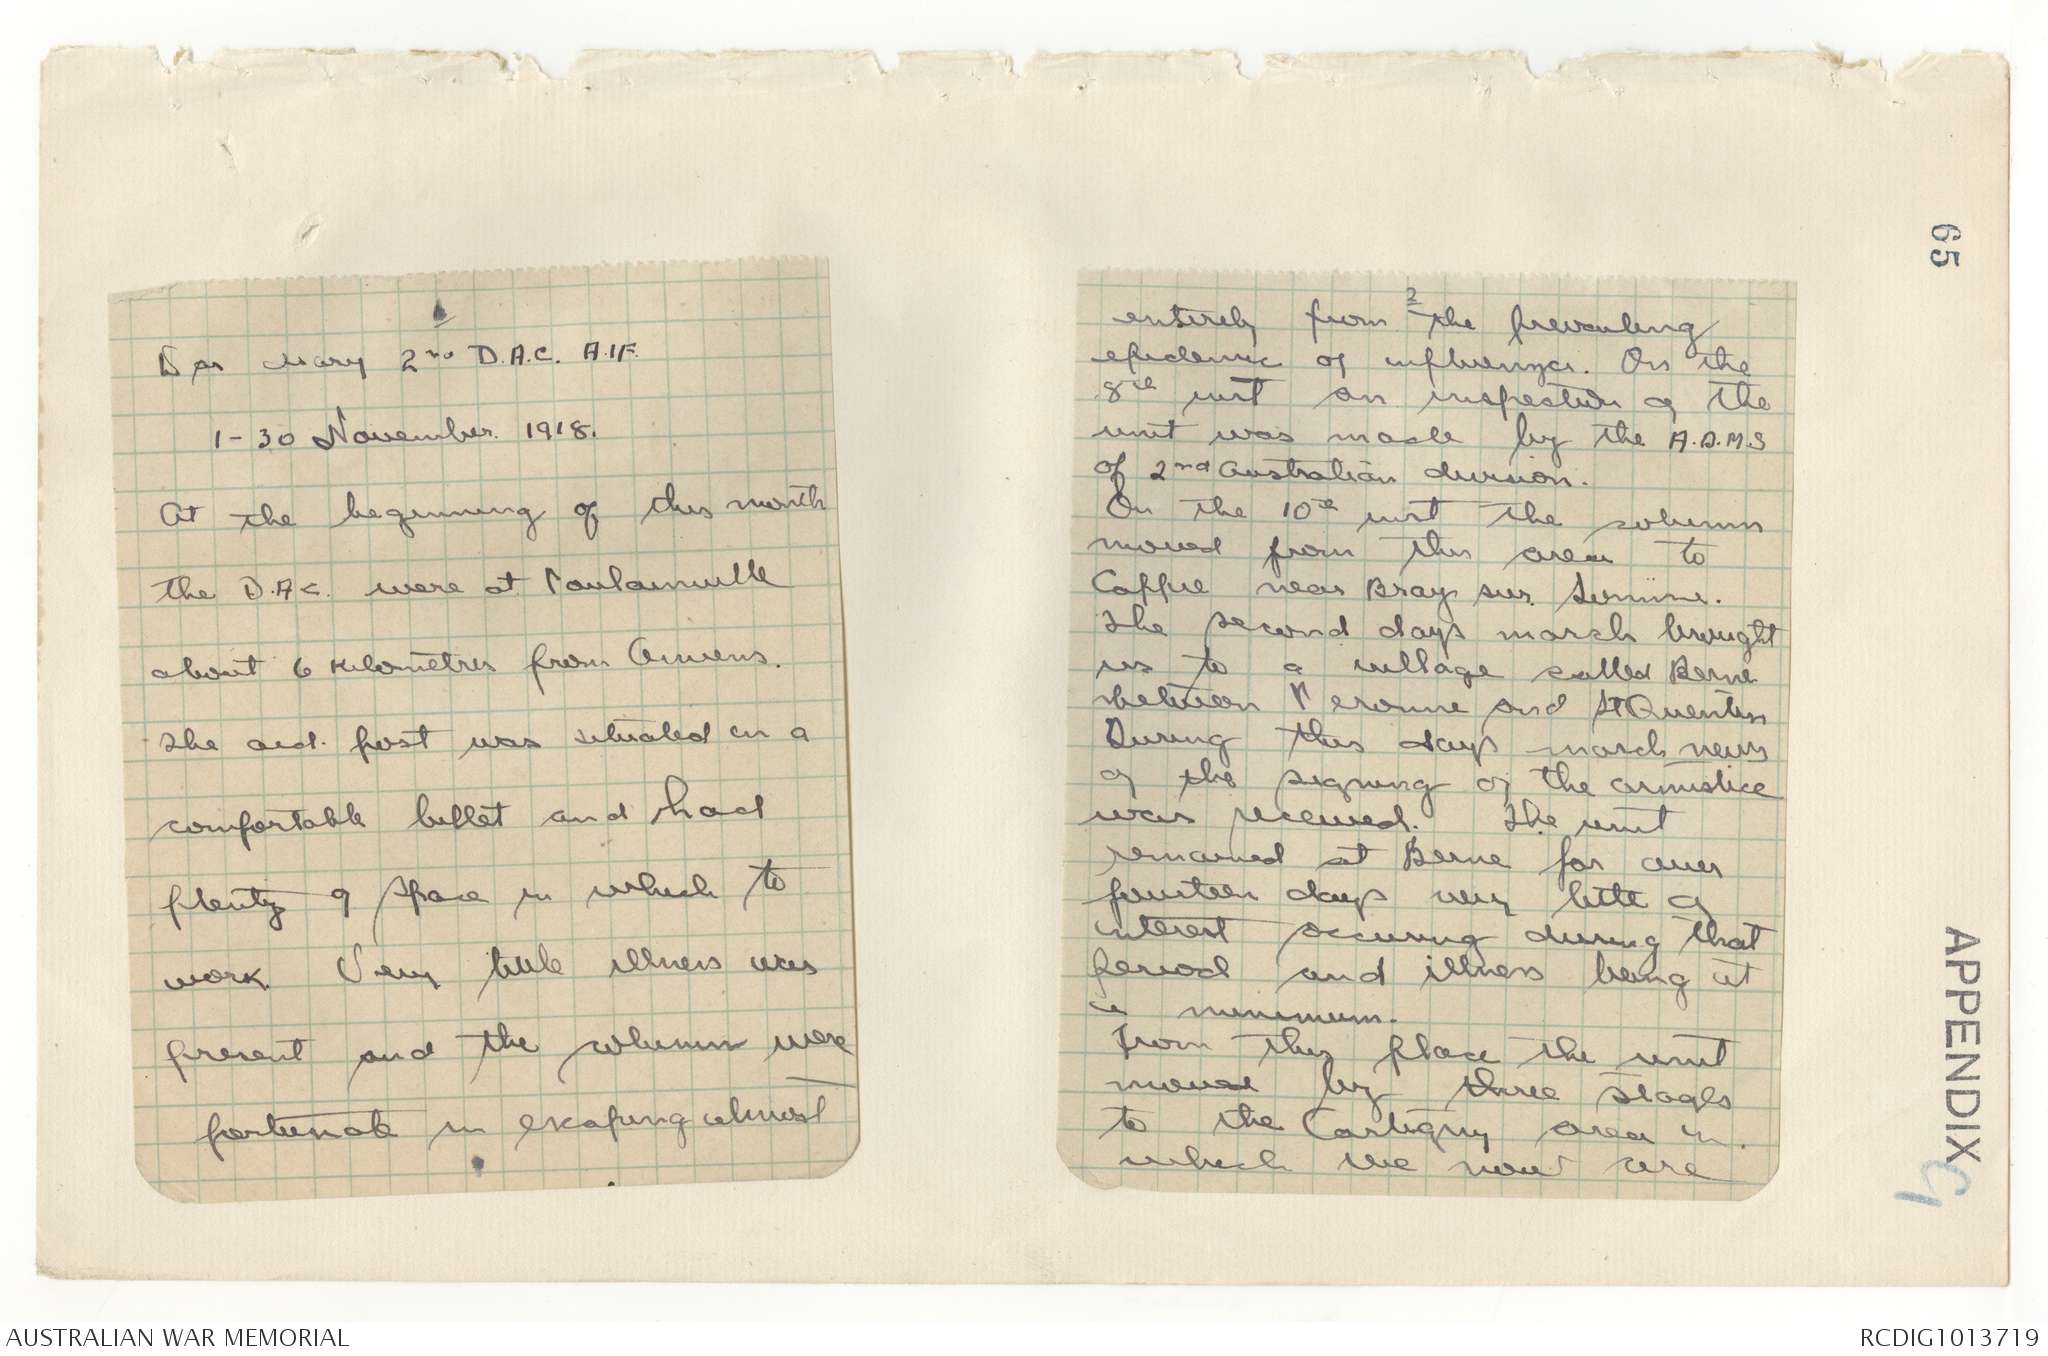 1
War Diary 2nd D.A.C. A.I.F.
1-30 November. 1918.
At the beginning of this month
the D.A.C. were at Poulainville
about 6 kilometres from Amiens.
The aid. post was situated in a
comfortable billet and had
plenty of space in which to
work. Very little illness was
present and the column were
fortunate in escaping almost
2
entirely from the prevailing
epidemic of influenza. On the
8th inst an inspection of the
unit was made by the A.D.M.S
of 2nd Australian division.
On the 10th inst the column
moved from this area to
Cappie near Bray sur Somme.
The second days march brought
us to a village called Berne
between Peronne and St Quentin
During this days march news
of the signing of the armistice
was received. The unit
remained at Berne for over
fourteen days very little of
interest occuring during that
period and illness being at
a minimum.
From this place the unit
moved by three stages
to the Cartigny area in.
which we now are
65
APPENDIX
AUSTRALIAN WAR MEMORIAL
RCDIG1013719